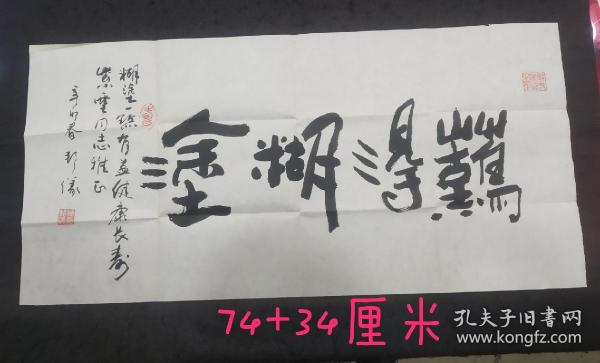 難得糊塗
糊塗一點有益健康長壽
紫雲同志雅正
辛卯春
74+34厘米
孔夫子旧书网
www.kongfz.com